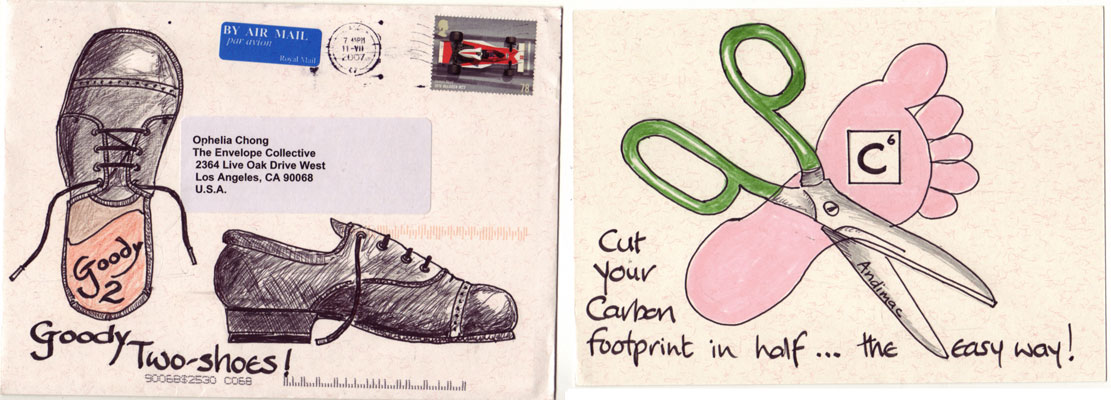 BY AIR MAIL
par avion
Royal Mail
7 NOV
11-AM
2007
Ophelia Chong
The Envelope Collective
2364 Live Oak Drive West
Los Angeles, CA 90068
U.S.A.
Goody
2
Goody Two-shoes!
90068$2530 C068
C6
Andimac
Cut
your
Carbon
footprint in half... the easy way!